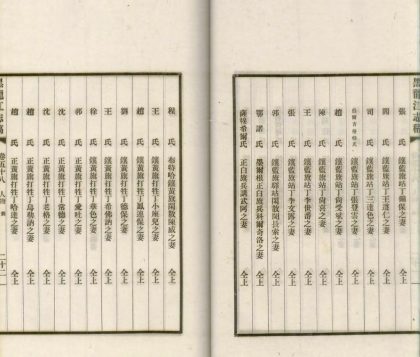 黑龍江志稿
張氏 鑲藍旗站丁 保之妻 仝上
關氏 鑲藍旗站丁王進仁之妻 仝上
司氏 鑲藍旗站丁三達色之妻 仝上
氏 鑲藍旗站丁張發雲之妻 仝上
趙氏 鑲藍旗站丁尚受斌之妻 仝上
陳氏 鑲藍旗站丁尚 之妻 仝上
王氏 鑲藍旗站丁李世 之妻 仝上
張氏 鑲藍旗站丁李文 之妻 仝上
郭氏 鑲藍旗驛站閒散閻長索之妻 仝上
鄂諾氏 墨爾根正白旗兵科爾奇洛之妻 仝上
薩幹希爾氏 正白旗兵諷武阿之妻 仝上
程氏 布特哈鑲黃旗閒散陳威之妻 仝上
王氏 鑲黃旗打牲丁小座兒之妻 仝上
趙氏 鑲黃旗打牲丁鳳連保之妻 仝上
劉氏 鑲黃旗打牲丁德保之妻 仝上
王氏 鑲黃旗打牲丁希佛訥之妻 仝上
徐氏 鑲黃旗打牲丁華色之妻 仝上
郭氏 正黃旗打牲丁愛哇之妻 仝上
沈氏 正黃旗打牲丁常德之妻 仝上
沈氏 正黃旗打牲丁 格之妻 仝上
趙氏 正黃旗打牲丁烏勒訥之妻 仝上
趙氏 正黃旗打牲丁哈達之妻 仝上
黑龍江志稿 卷五十八 人物 二十二